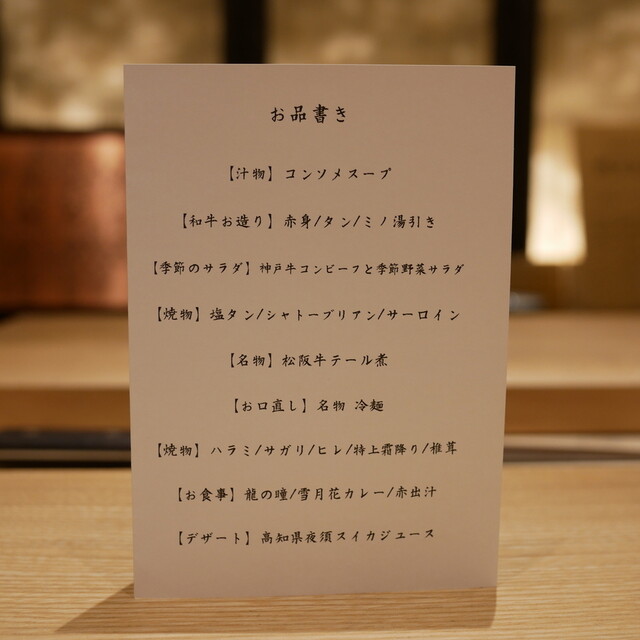 お品書き
【汁物】コンソメスープ
【和牛お造り】赤身/タン/ミノ湯引き
【季節のサラダ】神戸牛コンビーフと季節野菜サラダ
【焼物】塩タン/シャトーブリアン/サーロイン
【名物】松阪牛テール煮
【お口直し】名物 冷麺
【焼物】ハラミ/サガリ/ヒレ/特上霜降り/椎茸
【お食事】龍の瞳/雪月花カレー/赤出汁
【デザート】高知県夜須スイカジュース